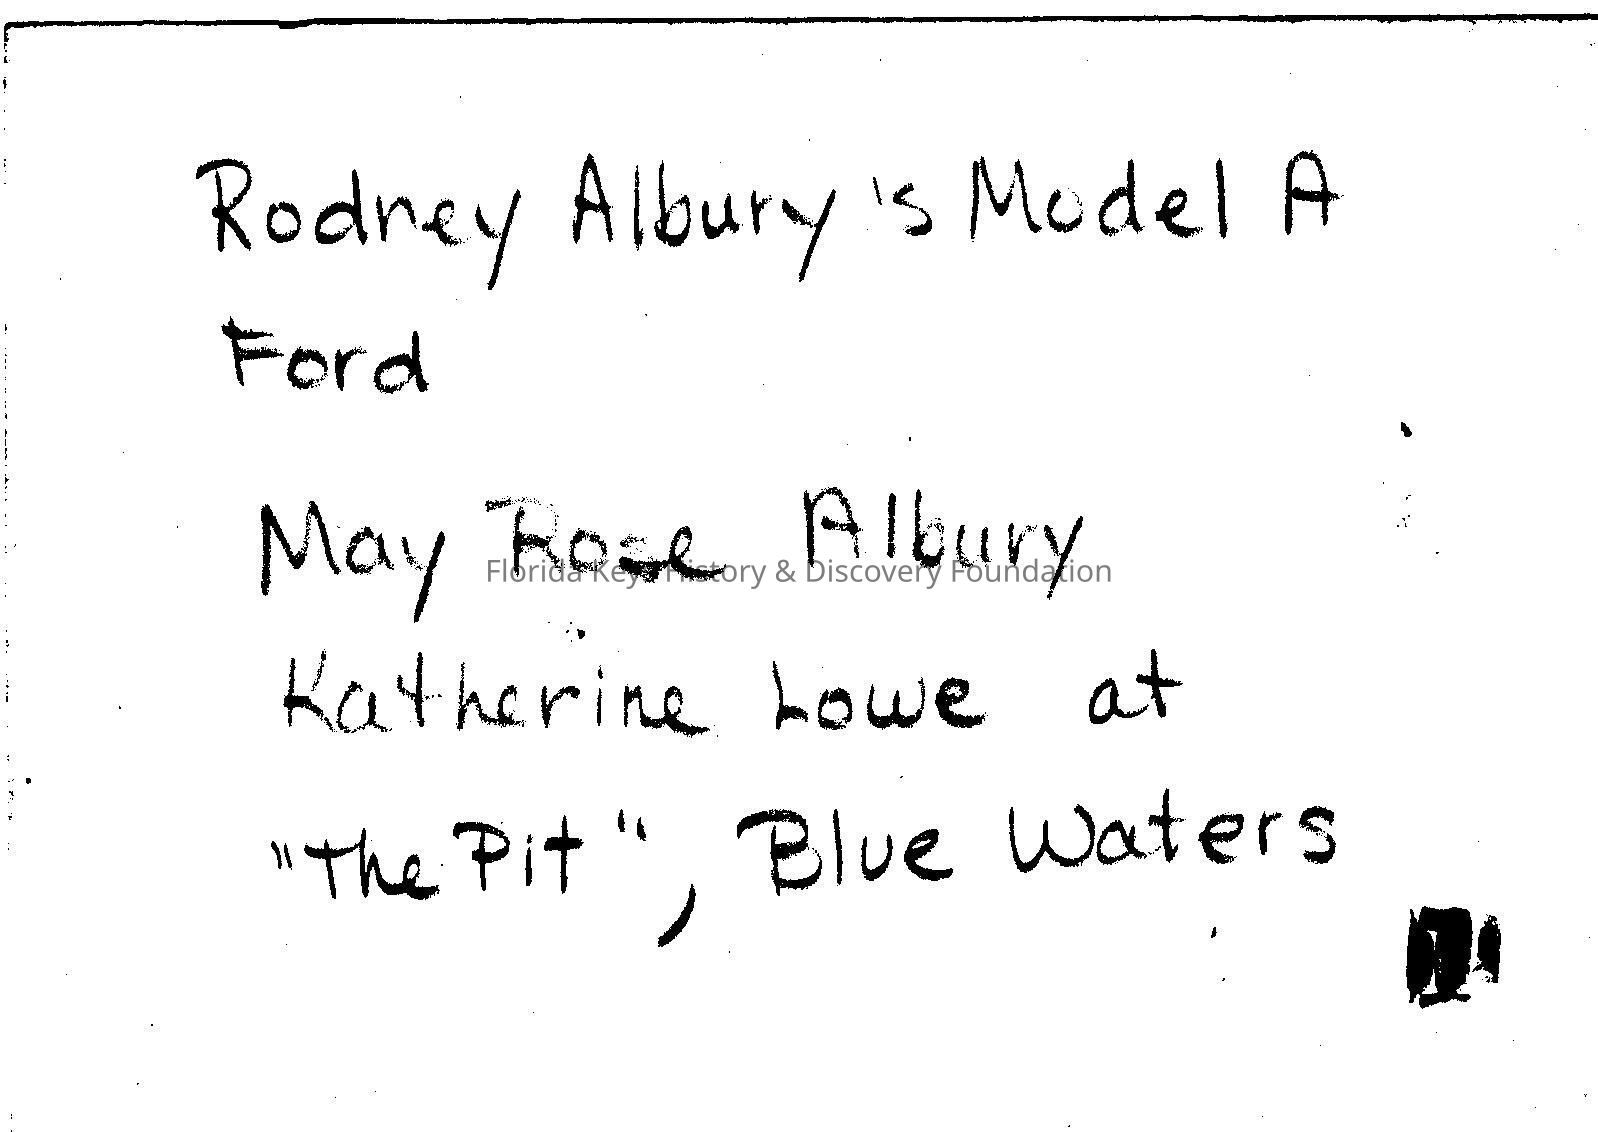 Rodney Albury's Model A
Ford
May Rose Albury
Florida Keys History & Discovery Foundation
Katherine Lowe at
"The Pit", Blue Waters